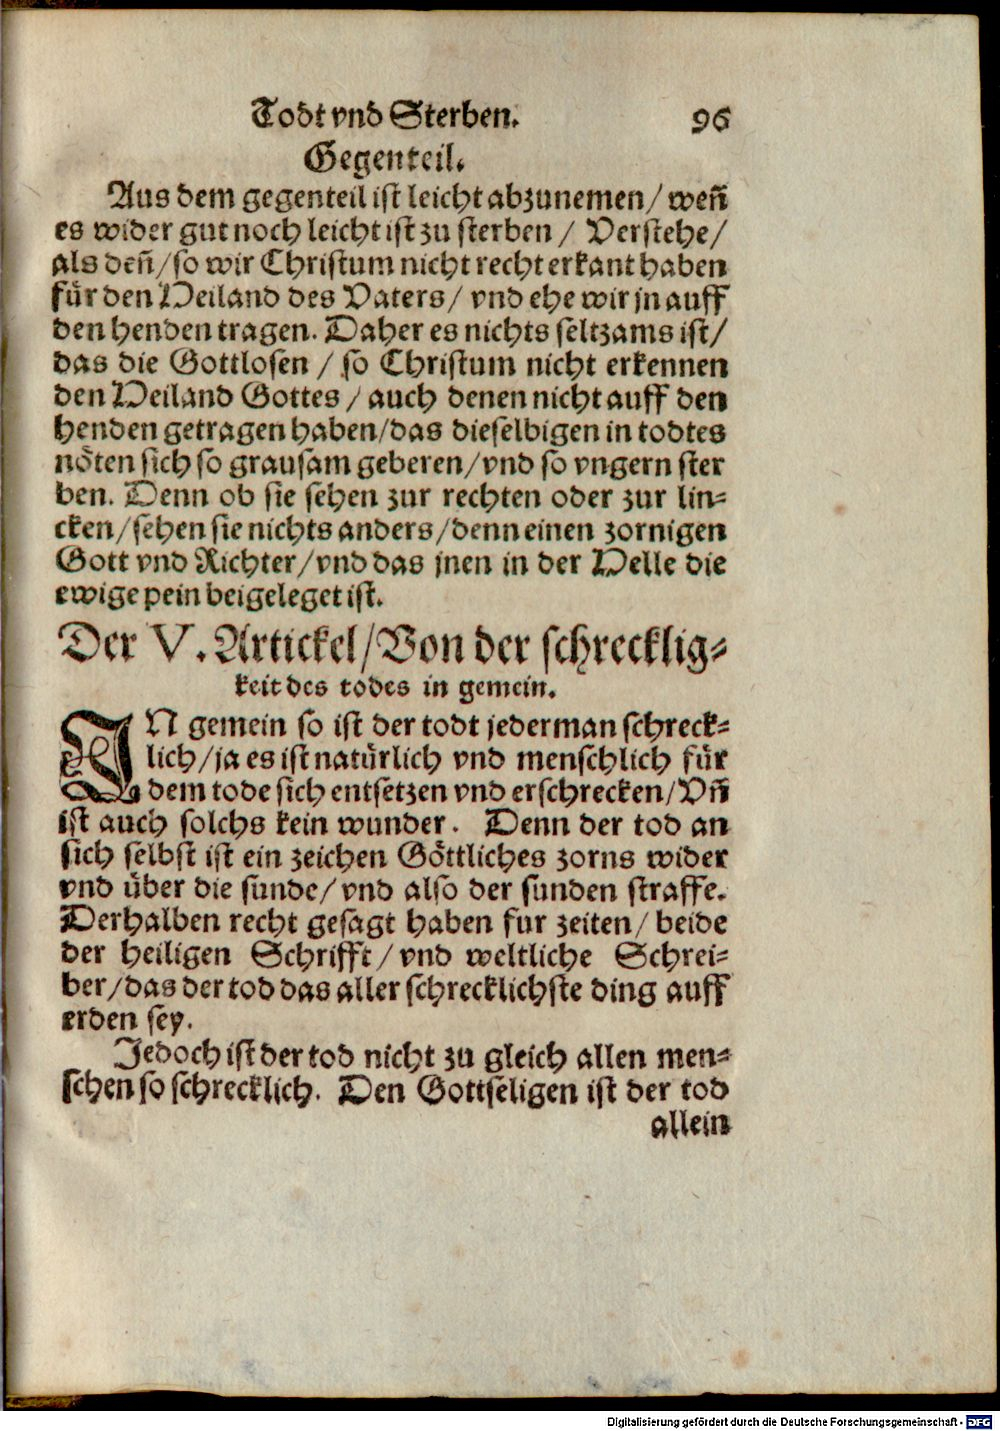 Todt vnd Sterben. 96
Gegenteil.
Aus dem gegenteil ist leicht abzunemen / weñ
es wider gut noch leicht ist zu sterben / Verstehe /
als deñ / so wir Christum nicht recht erkant haben
für den Heiland des Vaters / vnd ehe wir jn auff
den henden tragen. Daher es nichts seltzams ist /
das die Gottlosen / so Christum nicht erkennen
den Heiland Gottes / auch denen nicht auff den
henden getragen haben / das dieselbigen in todtes
nöten sich so grausam geberen / vnd so vngern ster
ben. Denn ob sie sehen zur rechten oder zur lin-
cken / sehen sie nichts anders / denn einen zornigen
Gott vnd Richter / vnd das jnen in der Helle die
ewige pein beigeleget ist.
Der V. Artickel / Von der schrecklig-
keit des todes in gemein.
IN gemein so ist der todt jederman schreck-
lich / ja es ist natürlich vnd menschlich für
dem tode sich entsetzen vnd erschrecken / Vñ
ist auch solchs kein wunder. Denn der tod an
sich selbst ist ein zeichen Göttliches zorns wider
vnd über die sunde / vnd also der sunden straffe.
Derhalben recht gesagt haben fur zeiten / beide
der heiligen Schrifft / vnd weltliche Schrei-
ber / das der tod das aller schrecklichste ding auff
erden sey.
Jedoch ist der tod nicht zu gleich allen men-
schen so schrecklich. Den Gottseligen ist der tod
allein
Digitalisierung gefördert durch die Deutsche Forschungsgemeinschaft - DFG